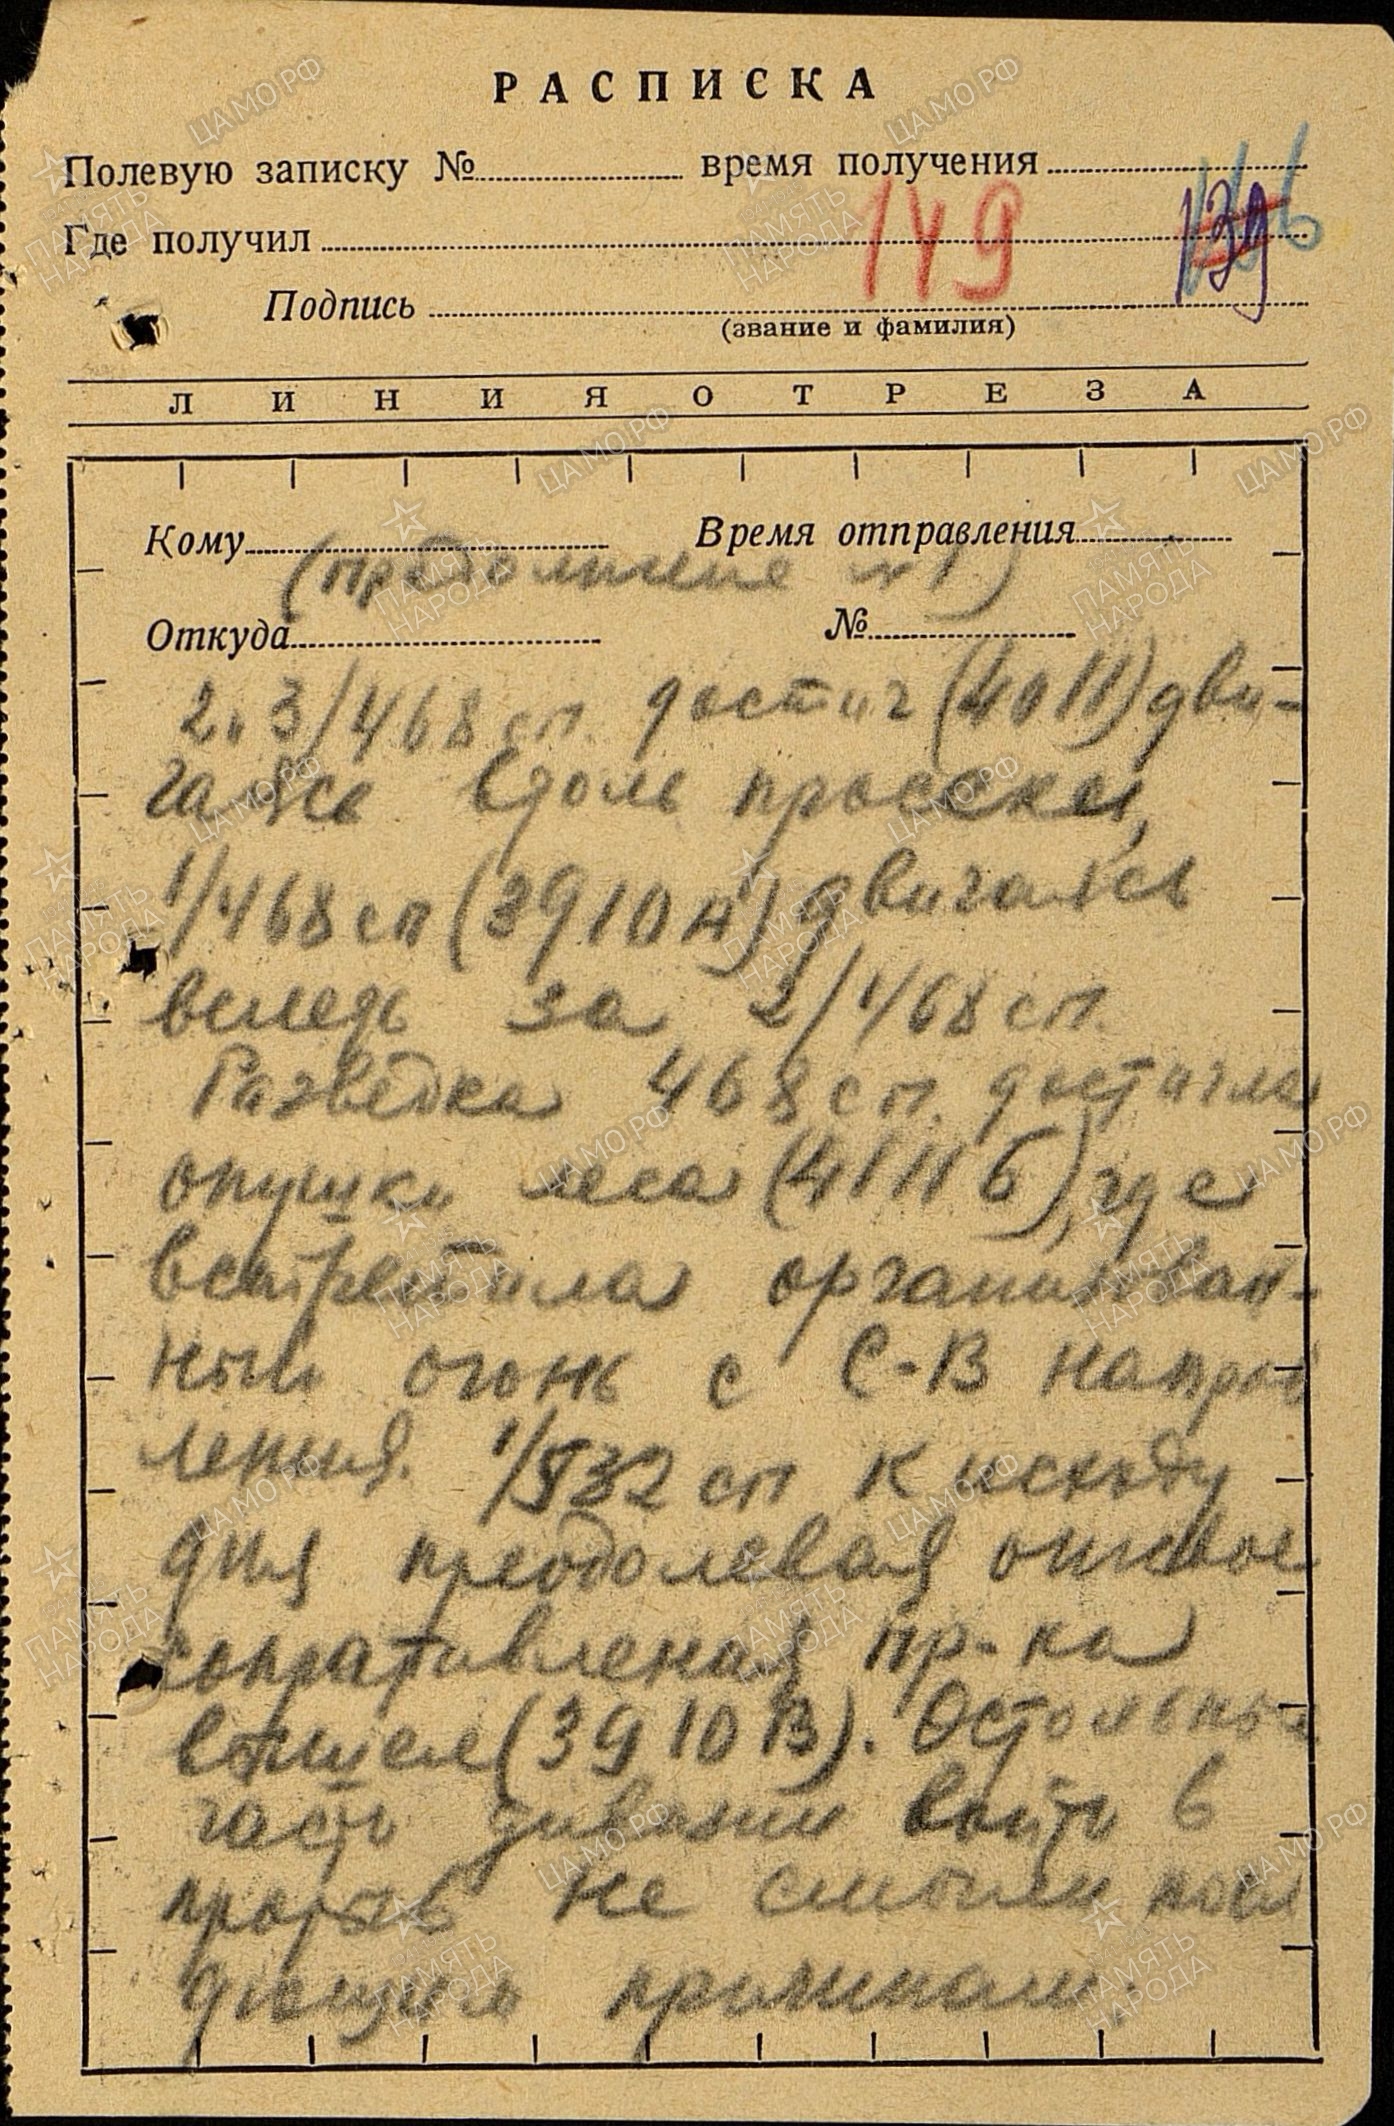 РАСПИСКА
Полевую записку № время получения
Где получил 149 139
Подпись
(звание и фамилия)
ЛИНИЯ ОТРЕЗА
Кому Время отправления
(продолжение №1)
Откуда №
2 и 3/468 сп. достиг (4011) дви-
гаясь вдоль просеки,
1/468 сп (3910А) двигаясь
вследь за 2/468 сп.
Разведка 468 сп. достигла
опушки леса (4111Б), где
встретила организован-
ный огонь с С-В направ
ления. 1/532 сп к исходу
дня преодолевая огневое
сопративленая пр-ка
вышел (3910В). Остальные
часть дивизии выйти в
прорыв не смогли по сле
дующим причинам.